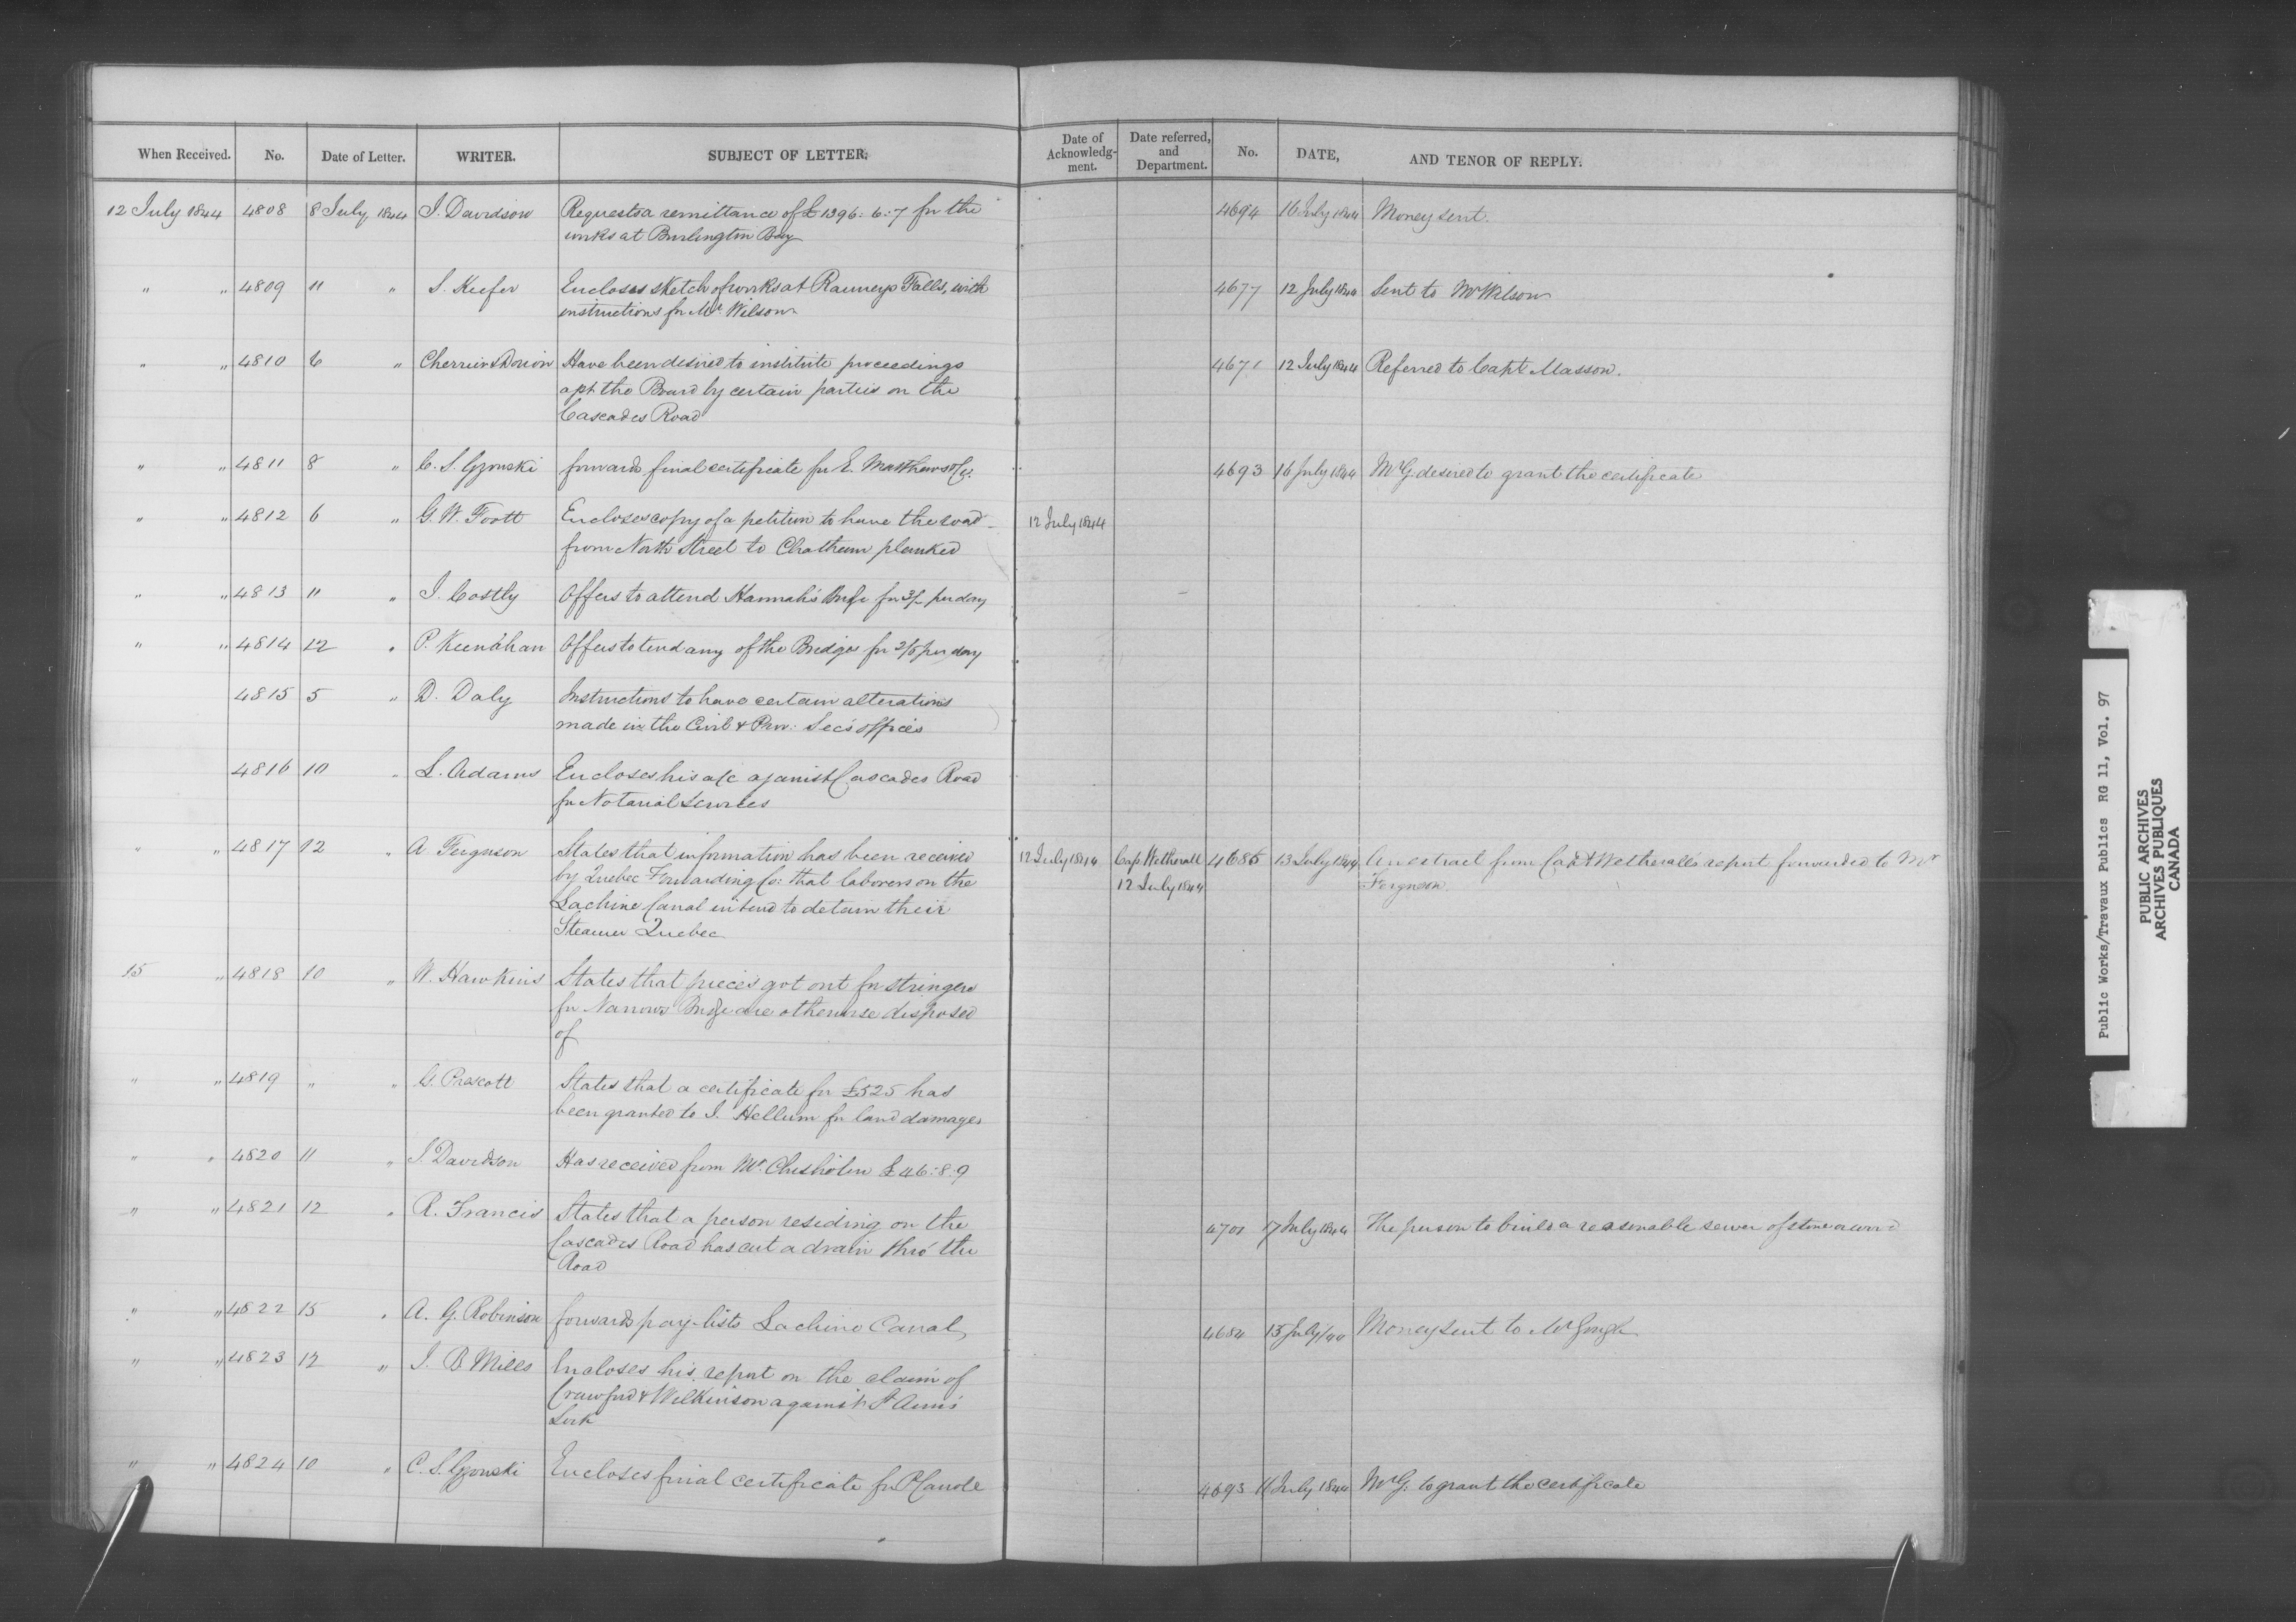 When Received. No. Date of Letter. WRITER. SUBJECT OF LETTER. Date of Acknowledg-ment. Date referred, and Department. No. DATE, AND TENOR OF REPLY.
12 July 1844 4808 8 July 1844 J. Davidson Requests a remittance of £1396:6:7 for the 4694 16 July 1844 Money sent.
works at Burlington Bay
" " 4809 11 " S. Keefer Encloses sketch of works at Ranneys Falls, with 4677 12 July 1844 Sent to Mr Wilson
instructions for Mr Wilson
" " 4810 6 " Cherrier & Dorion Have been desired to institute proceedings 4671 12 July 1844 Referred to Capt Masson.
agst the Board by certain parties on the
Cascades Road
" " 4811 8 " C. S. Gzowski forwards final certificate for E. Matthews & Co: 4693 16 July 1844 Mr G. desired to grant the certificate
" " 4812 6 " G. W. Foott Encloses copy of a petition to have the road 12 July 1844
from North Street to Chatham planked
" " 4813 11 " J. Costly Offers to attend Hannah's Bridge for 3/- per day
" " 4814 12 " P. Keenahan Offers to tend any of the Bridges for per day
4815 5 " D. Daly Instructions to have certain alterations
made in the Civil & Prov: Sec's offices
4816 10 " L. Adams Encloses his a/c against Cascades Road
for Notarial Services
" " 4817 12 " A Ferguson States that information has been received 12 July 1844 Cap Wetherall 4685 13 July 1844 An extract from Capt Wetherall's report forwarded to Mr
by Quebec Forwarding Co: that laborers on the 12 July 1844 Ferguson
Lachine Canal intend to detain their
Steamer Quebec
15 " 4818 10 " W. Hawkins States that pieces got out for stringers
for Narrows Bridge are otherwise disposed
of
" " 4819 " " G. Prescott States that a certificate for £525 has
been granted to J. Hellum for land damages
" " 4820 11 " J. Davidson Has received from Mr. Chisholm £46:8:9
" " 4821 12 " R. Francis States that a person residing on the 4701 17 July 1844 The person to build a reasonable sewer of stone or wood
Cascades Road has cut a drain thro' the
Road
" " 4822 15 " A. G. Robinson forwards pay-lists Lachine Canal, 4684 15 July/44 Money sent to Mr Gough
" " 4823 12 " J. B Mills Incloses his report on the claim of
Crawford & Wilkinson against St Ann's
Lock
" " 4824 10 " C. S. Gzowski Encloses final certificate for 4693 July 1844 Mr G. to grant the certificate
Public Works/Travaux Publics RG 11, Vol. 97
PUBLIC ARCHIVES
ARCHIVES PUBLIQUES
CANADA